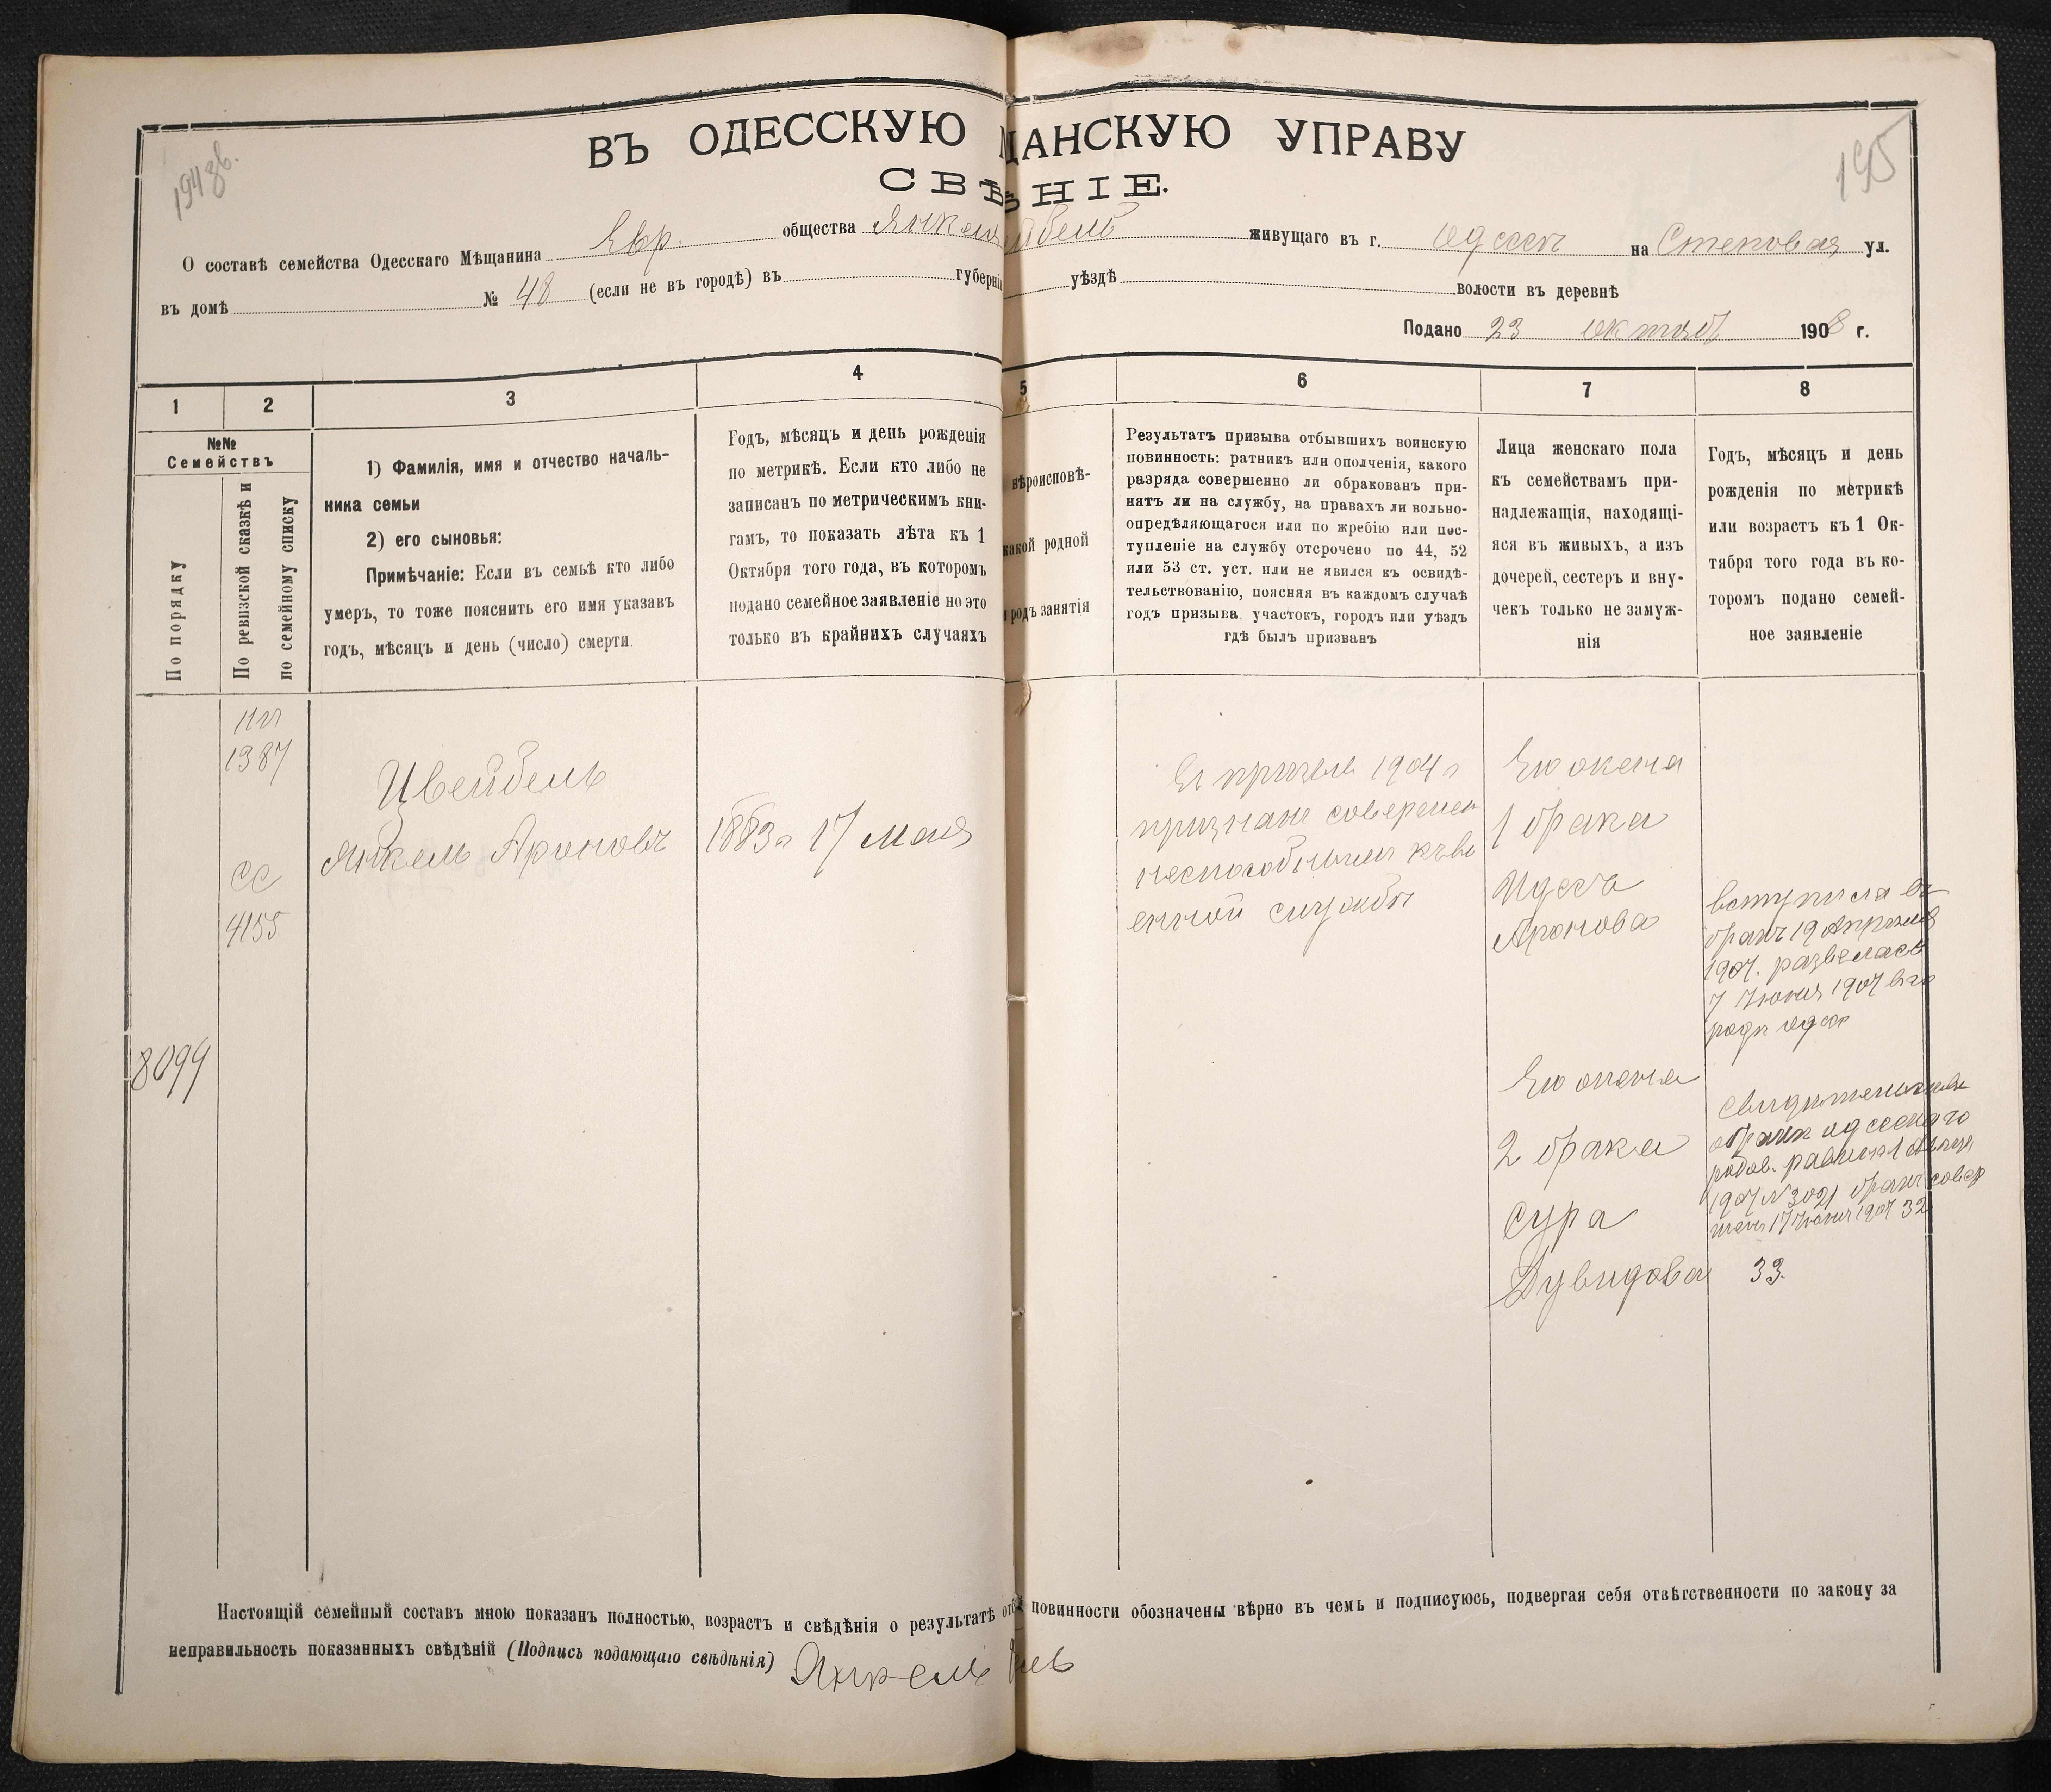 ВЪ ОДЕССКУЮ ЩАНСКУЮ УПРАВУ
СВѢ НІЕ.
195
О составѣ семейства Одесскаго Мѣщанина Евр. общества Янкель бель живущаго въ г. Одессѣ на Степовая ул.
въ домѣ № 48 (если не въ городѣ) въ губерні уѣздѣ волости въ деревнѣ
Подано 23 октяб 1908 г.
1 2 3 4 5 6 7 8
№№
Семействъ
По порядку
По ревизской сказкѣ и
по семейному списку
1) Фамилія, имя и отчество началь-
ника семьи
2) его сыновья:
Примѣчаніе: Если въ семьѣ кто либо
умеръ, то тоже пояснить его имя указавъ
годъ, мѣсяцъ и день (число) смерти.
Годъ, мѣсяцъ и день рожденія
по метрикѣ. Если кто либо не
записанъ по метрическимъ кни-
гамъ, то показать лѣта къ 1
Октября того года, въ которомъ
подано семейное заявленіе но это
только въ крайнихъ случаяхъ
вѣроисповѣ-
какой родной
и родъ занятія
Результатъ призыва отбывшихъ воинскую
повинность: ратникъ или ополченія, какого
разряда совершенно ли обракованъ при-
нятъ ли на службу, на правахъ ли вольно-
опредѣляющагося или по жребію или пос-
тупленіе на службу отсрочено по 44, 52
или 53 ст. уст. или не явился къ освидѣ-
тельствованію, поясняя въ каждомъ случаѣ
годъ призыва участокъ, городъ или уѣздъ
гдѣ былъ призванъ
Лица женскаго пола
къ семействамъ при-
надлежащія, находящі-
яся въ живыхъ, а изъ
дочерей, сестеръ и вну-
чекъ только не замуж-
нія
Годъ, мѣсяцъ и день
рожденія по метрикѣ
или возрастъ къ 1 Ок-
тября того года въ ко-
торомъ подано семей-
ное заявленіе
1387
сс
4155
8099
Цвейбель
Янкель Ароновъ
1883 г 17 мая
призыв 1904 г
признан совершен
неспособным къ во
енной службы
Его жена
1 брака
Идесъ
Аронова
вступила въ
бракъ 19 Апреля
1907. развелась
7 Июня 1907 в го
роде Одес
Его жена
2 брака
Сура
Дувидова
браке одесского
1907 № 3021 бракъ совер
шен 17 Июня 1907 32
33.
Настоящій семейный составъ мною показанъ полностью, возрастъ и свѣдѣнія о результатѣ отб повинности обозначены вѣрно въ чемъ и подписуюсь, подвергая себя отвѣтственности по закону за
неправильность показанныхъ свѣдѣній (Подпись подающаго свѣдѣнія) Янкель